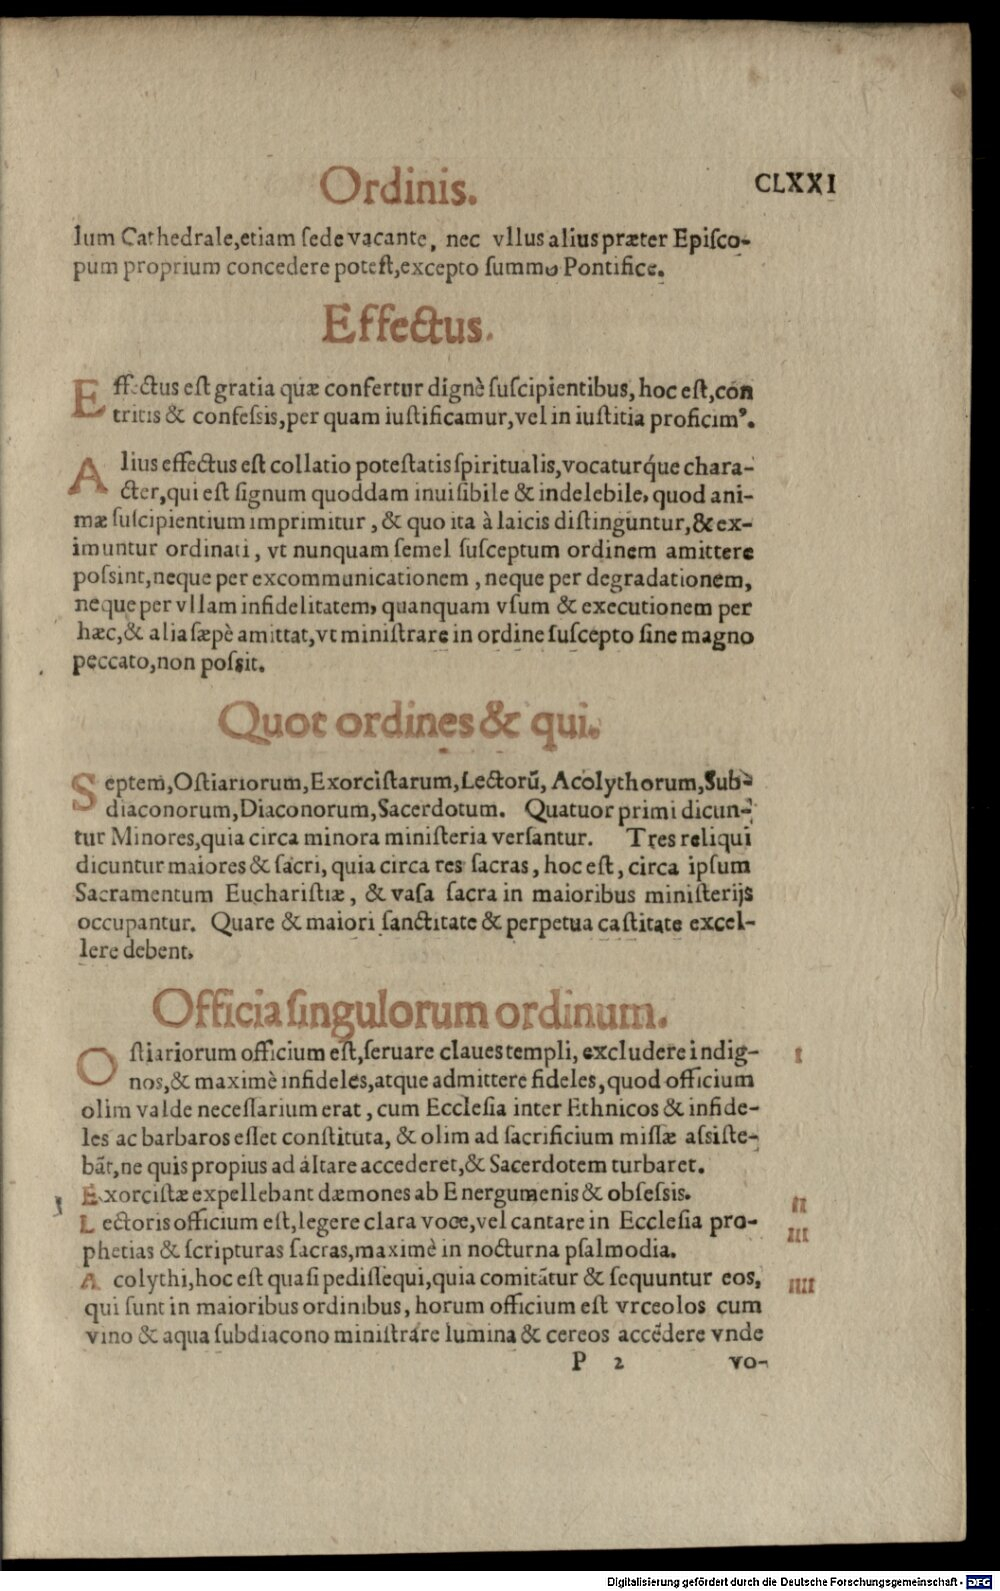 Ordinis.
CLXXI
lum Cathedrale,etiam ſede vacante, nec vllus alius præter Epiſco-
pum proprium concedere poteſt,excepto ſummo Pontifice.
Effectus.
Effectus eſt gratia quæ confertur dignè ſuſcipientibus, hoc eſt,con
tritis & confeſsis,per quam iuſtificamur,vel in iuſtitia proficimꝰ.
Alius effectus eſt collatio poteſtatis ſpiritualis,vocaturq́ue chara-
cter,qui eſt ſignum quoddam inuiſibile & indelebile, quod ani-
mæ ſuſcipientium imprimitur, & quo ita à laicis diſtinguntur,& ex-
imuntur ordinati, vt nunquam ſemel ſuſceptum ordinem amittere
poſsint,neque per excommunicationem, neque per degradationem,
neque per vllam infidelitatem, quanquam vſum & executionem per
hæc,& alia ſæpè amittat,vt miniſtrare in ordine ſuſcepto ſine magno
peccato,non poſsit.
Quot ordines & qui.
Septem,Oſtiariorum,Exorciſtarum,Lectorū, Acolythorum,Sub-
diaconorum,Diaconorum,Sacerdotum. Quatuor primi dicun-
tur Minores,quia circa minora miniſteria verſantur. Tres reliqui
dicuntur maiores & ſacri, quia circa res ſacras, hoc eſt, circa ipſum
Sacramentum Euchariſtiæ, & vaſa ſacra in maioribus miniſterijs
occupantur. Quare & maiori ſanctitate & perpetua caſtitate excel-
lere debent.
Officia ſingulorum ordinum.
Oſtiariorum officium eſt,ſeruare claues templi, excludere indig-
I
nos,& maximè infideles,atque admittere fideles, quod officium
olim valde neceſſarium erat, cum Eccleſia inter Ethnicos & infide-
les ac barbaros eſſet conſtituta, & olim ad ſacrificium miſſæ aſsiſte-
bāt,ne quis propius ad altare accederet,& Sacerdotem turbaret.
Exorciſtæ expellebant dæmones ab Energumenis & obſeſsis.
II
Lectoris officium eſt,legere clara voce,vel cantare in Eccleſia pro-
III
phetias & ſcripturas ſacras,maximè in nocturna pſalmodia.
Acolythi,hoc eſt quaſi pediſſequi,quia comitātur & ſequuntur eos,
IIII
qui ſunt in maioribus ordinibus, horum officium eſt vrceolos cum
vino & aqua ſubdiacono miniſtrare lumina & cereos accēdere vnde
P 2
vo-
Digitalisierung gefördert durch die Deutsche Forschungsgemeinschaft - DFG